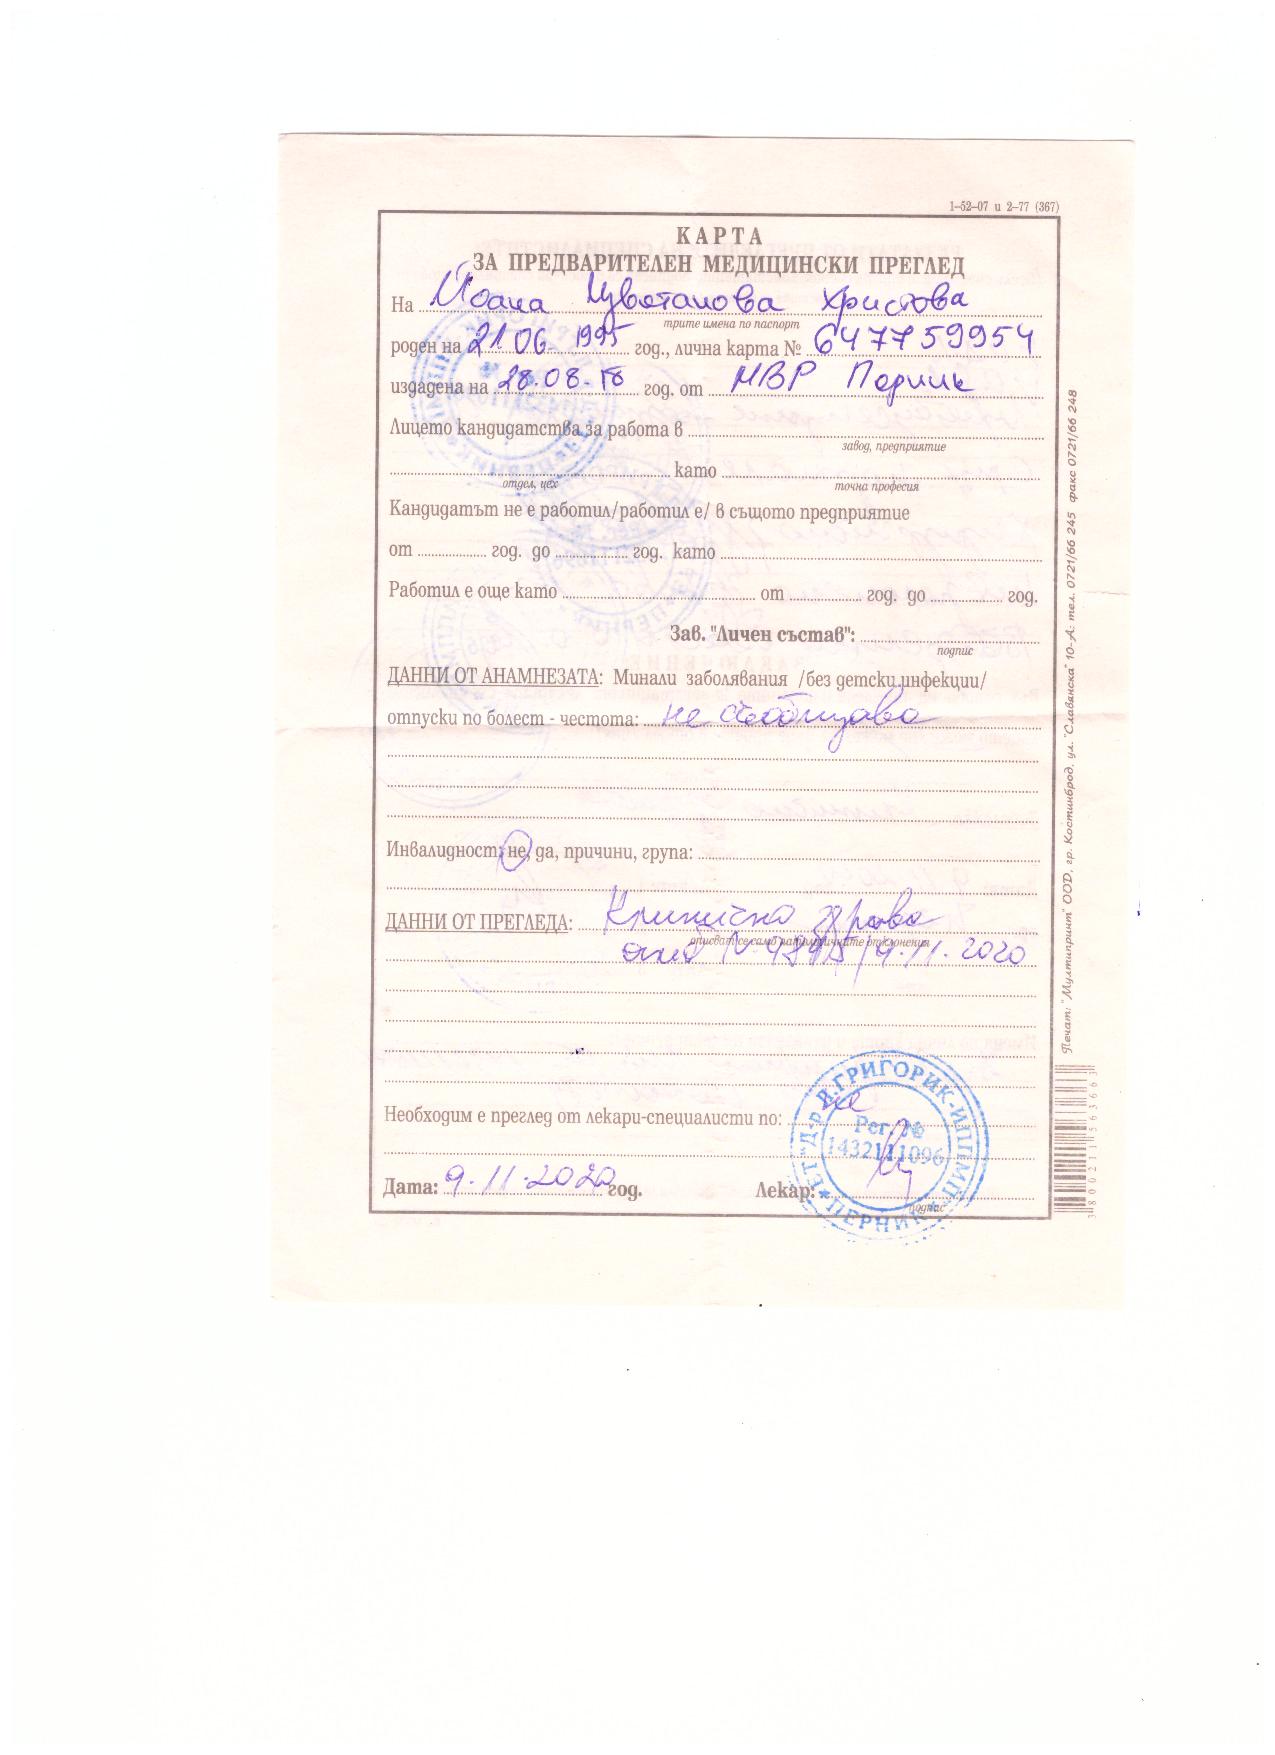 1–52–07 и 2–77 (367)
КАРТА
ЗА ПРЕДВАРИТЕЛЕН МЕДИЦИНСКИ ПРЕГЛЕД
На Йоана Цветанова Христова
трите имена по паспорт
роден на 21.06. 1995 год., лична карта № 647759954
издадена на 28.08.18 год. от МВР Перник
Лицето кандидатства за работа в
завод, предприятие
като
отдел, цех точна професия
Кандидатът не е работил/работил е/ в същото предприятие
от год. до год. като
Работил е още като от год. до год.
Зав. "Личен състав":
подпис
ДАННИ ОТ АНАМНЕЗАТА: Минали заболявания /без детски инфекции/
отпуски по болест - честота: не съобщава
Инвалидност: не, да, причини, група:
ДАННИ ОТ ПРЕГЛЕДА: Клинично здрава
описват се само патологичните отклонения
9.11.2020
Необходим е преглед от лекари-специалисти по: не
Дата: 9.11.2020 год. Лекар:
подпис
ЕТ "Д-р Д.ГРИГОРИК-ИППМП" ПЕРНИК
Рег. №
1432111096
Печат: "Мултипринт" ООД, гр. Костинброд, ул. "Славянска" 10-А; тел. 0721/66 245 факс 0721/66 248
3800211563663